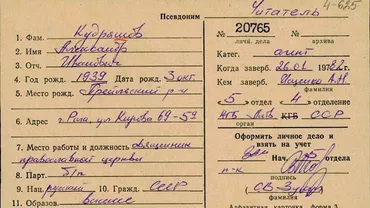 Псевдоним Читатель
4-625
1 Фам. Кудряшов
2 Имя Александр
3 Отч. Иванович
4 Год рожд. 1939 Дата рожд. 3 окт.
5 Место рожд. р-н
6 Адрес г. Рига, ул. Кирова 69-59
7 Место работы и должность священник
православной церкви
8 Парт. б/п
9 Нац. русский 10 Гражд. СССР
11 Образов. высшее
№ 20765
личн. дела архива
Катег. агент
Когда заверб. 26.01 1982 г.
Кем заверб. Ищенко А.Н.
фамилия
5 отдел 4 отделение
КГБ Латв. ССР
Оформить личное дело и
взять на учет
п-к
подпись
фамилия
Алфавитная карточка, форма